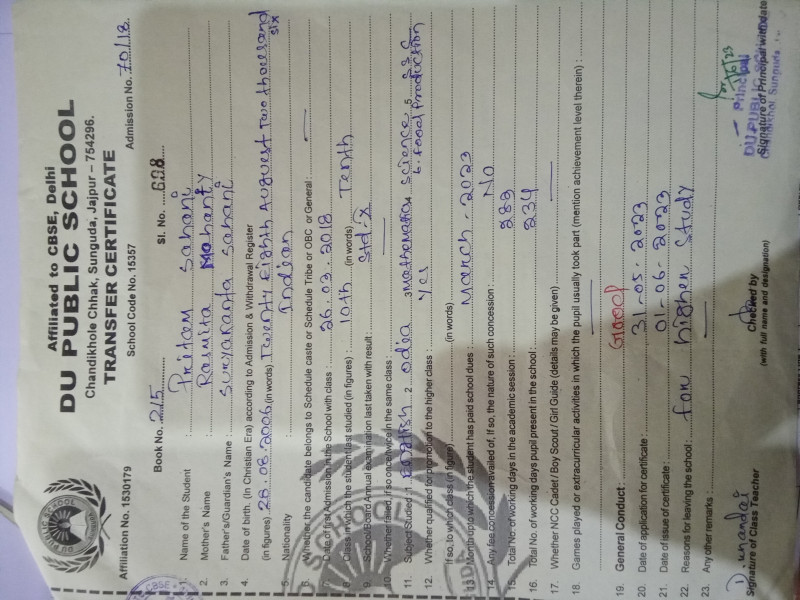 Affiliated to CBSE, Delhi
DU PUBLIC SCHOOL
Chandikhole Chhak, Sunguda, Jajpur – 754296.
TRANSFER CERTIFICATE
Affiliation No. 1530179 School Code No. 15357 Admission No. 70/18
Book No. 2/5 Sl. No. 698
1. Name of the Student : Pritam Sahani
2. Mother's Name : Rasmita Mohanty
3. Father's/Guardian's Name : Suryakanta Sahani
4. Date of birth. (In Christian Era) according to Admission & Withdrawal Register
(in figures) 28.08.2006 (in words) Twenty Eighth Auguest Two thousand six
5. Nationality : Indian
6. Whether the candidate belongs to Schedule caste or Schedule Tribe or OBC or General : —
7. Date of first Admission in the School with class : 26.03.2018
8. Class in which the student last studied (in figures) : 10th (in words) Tenth
9. School/Board Annual examination last taken with result : Std-X
10. Whether failed, if so once/twice in the same class : —
11. Subject Studied : 1 English 2 Odia 3 Mathematics 4 Science 5 SSC
6. Food Production
12. Whether qualified for promotion to the higher class : Yes
If so, to which class (in figure) (in words)
13. Month up to which the student has paid school dues : March - 2023
14. Any fee concession availed of, if so, the nature of such concession : No
15. Total No. of working days in the academic session :
16. Total No. of working days pupil present in the school : 234
17. Whether NCC Cadet / Boy Scout / Girl Guide (details may be given) : —
18. Games played or extracurricular activities in which the pupil usually took part (mention achievement level therein) :
—
19. General Conduct : Good
20. Date of application for certificate : 31-05-2023
21. Date of issue of certificate : 01-06-2023
22. Reasons for leaving the school : for higher Study
23. Any other remarks : —
Signature of Class Teacher
Checked by
(with full name and designation)
Principal
DU PUBLIC SCHOOL
Chandikhol, Sunguda
Signature of Principal with date
DU PUBLIC SCHOOL